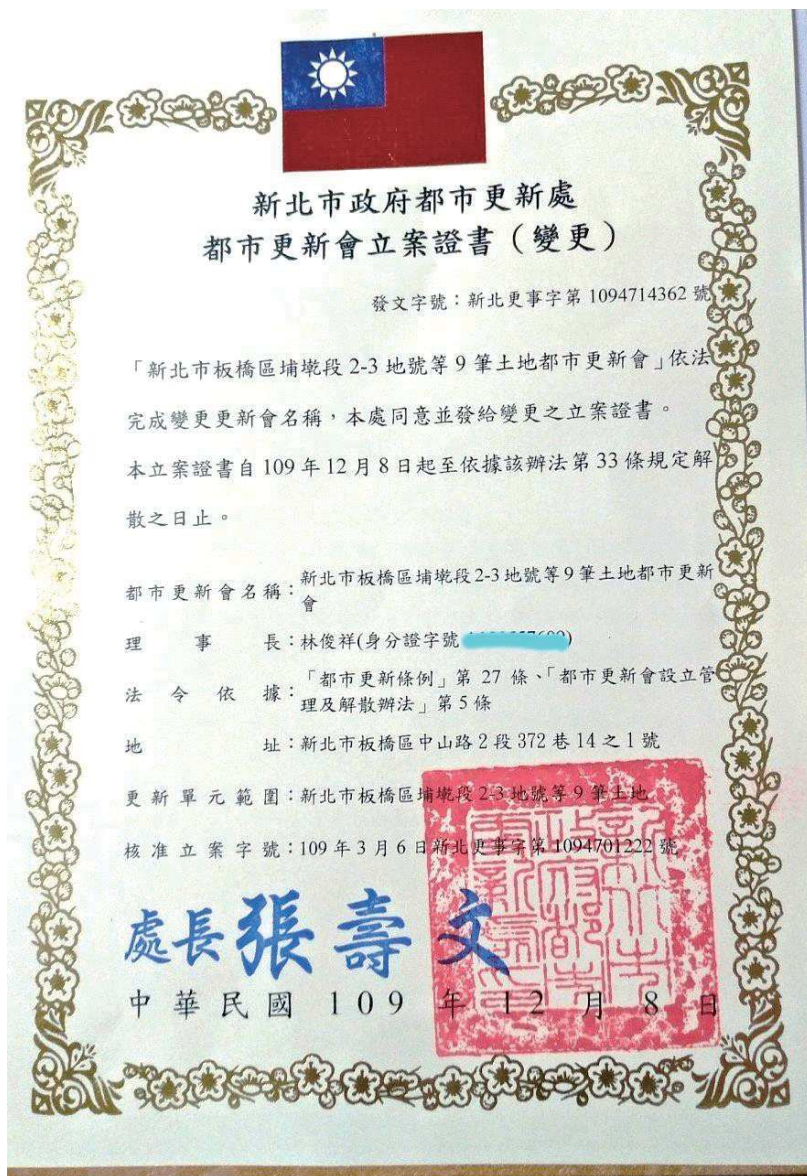 新北市政府都市更新處
都市更新會立案證書（變更）
發文字號：新北更事字第 1094714362 號
「新北市板橋區埔墘段 2-3 地號等 9 筆土地都市更新會」依法
完成變更更新會名稱，本處同意並發給變更之立案證書。
本立案證書自 109 年 12 月 8 日起至依據該辦法第 33 條規定解
散之日止。
都市更新會名稱：新北市板橋區埔墘段 2-3 地號等 9 筆土地都市更新
會
理事長：林俊祥(身分證字號)
法令依據：「都市更新條例」第 27 條、「都市更新會設立管
理及解散辦法」第 5 條
地址：新北市板橋區中山路 2 段 372 巷 14 之 1 號
更新單元範圍：新北市板橋區埔墘段 2-3 地號等 9 筆土地
核准立案字號：109 年 3 月 6 日新北更事字第 1094701222 號
處長張壽文
中華民國 109 年 12 月 8 日